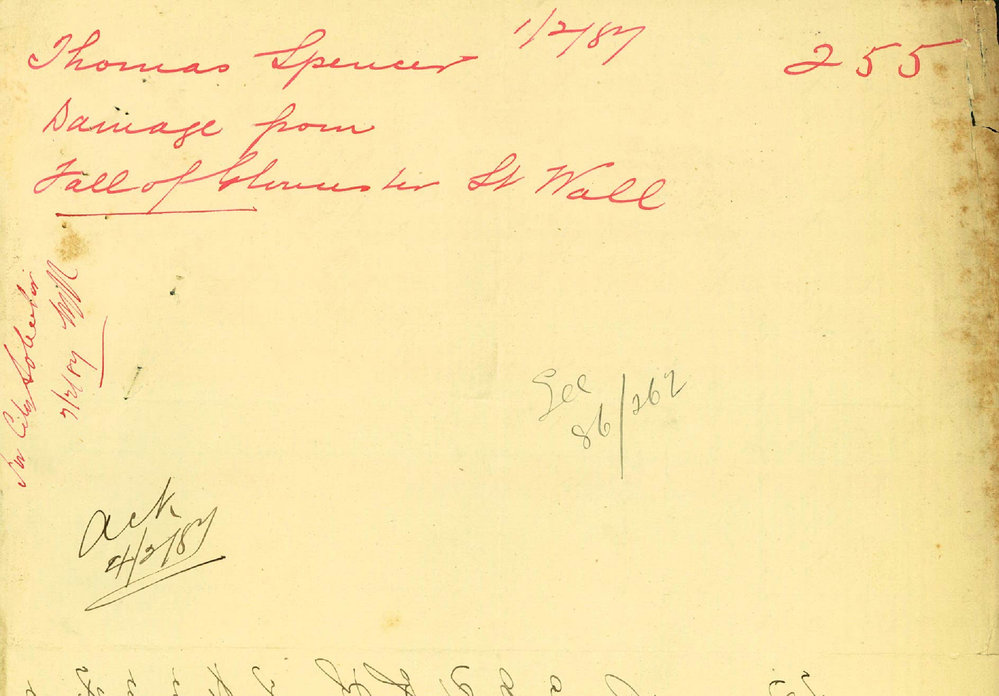 Thomas Spencer 1/2/87 255
Damage from
Fall of Gloucester St Wall
City Solicitor
7/2/87
See
86/262
Ack
4/2/87